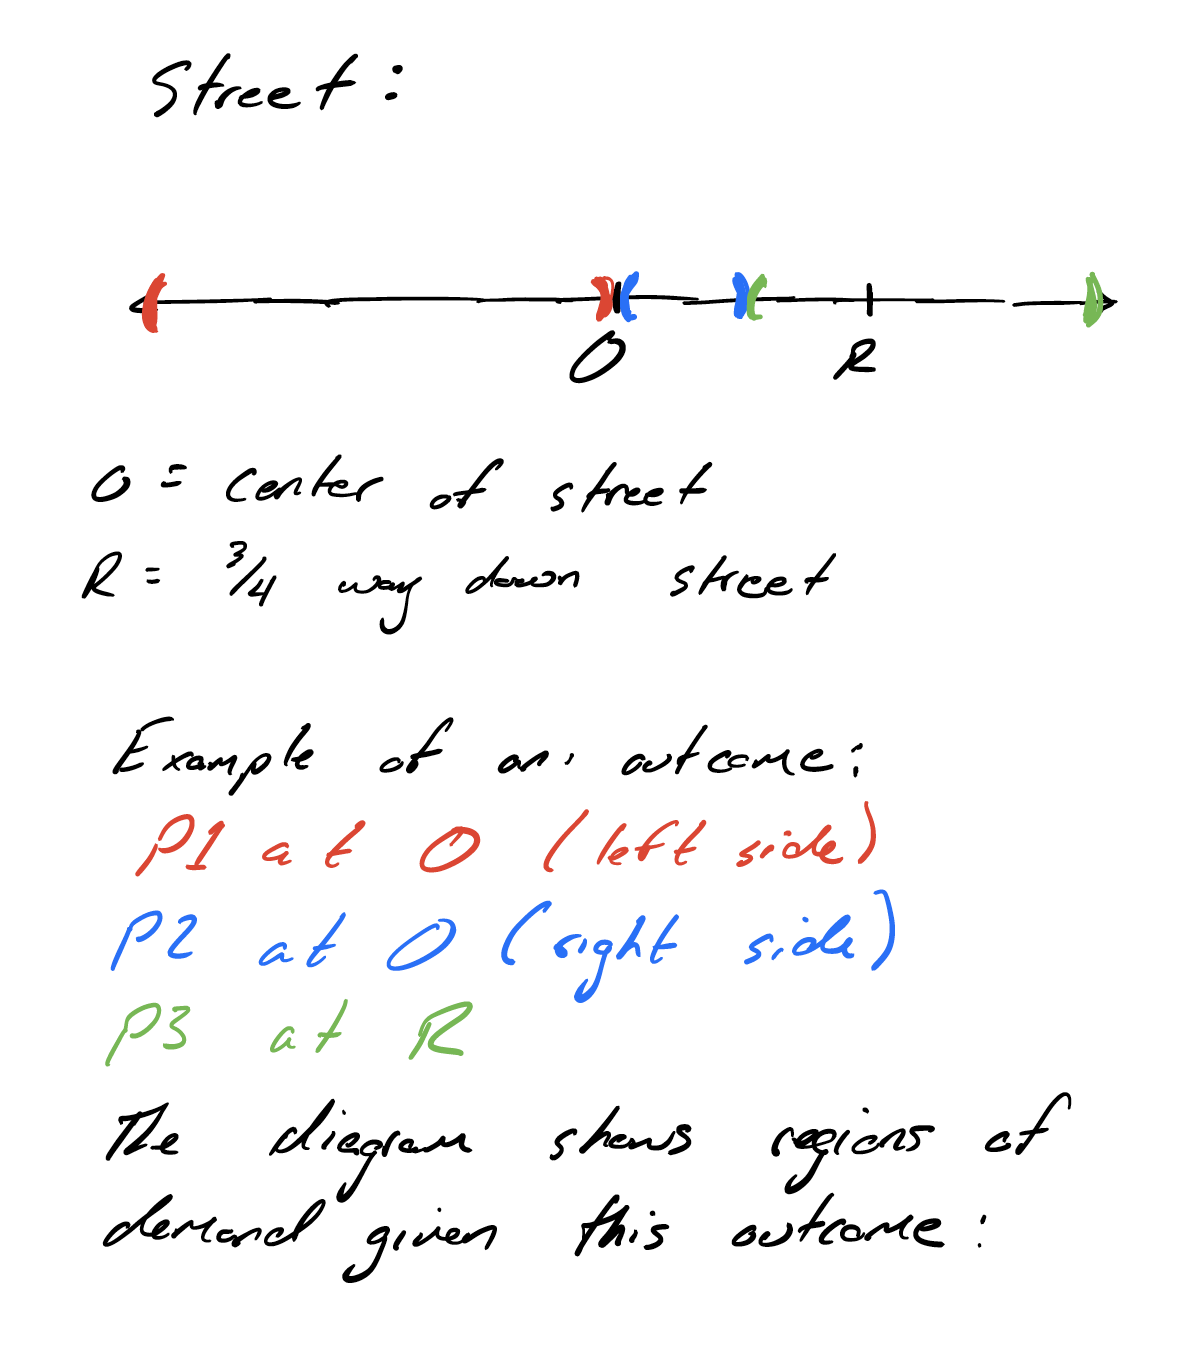 Street:
O R
O = center of street
R = 3/4 way down street
Example of an outcome:
P1 at O (left side)
P2 at O (right side)
P3 at R
The diagram shows regions of
demand given this outcome: